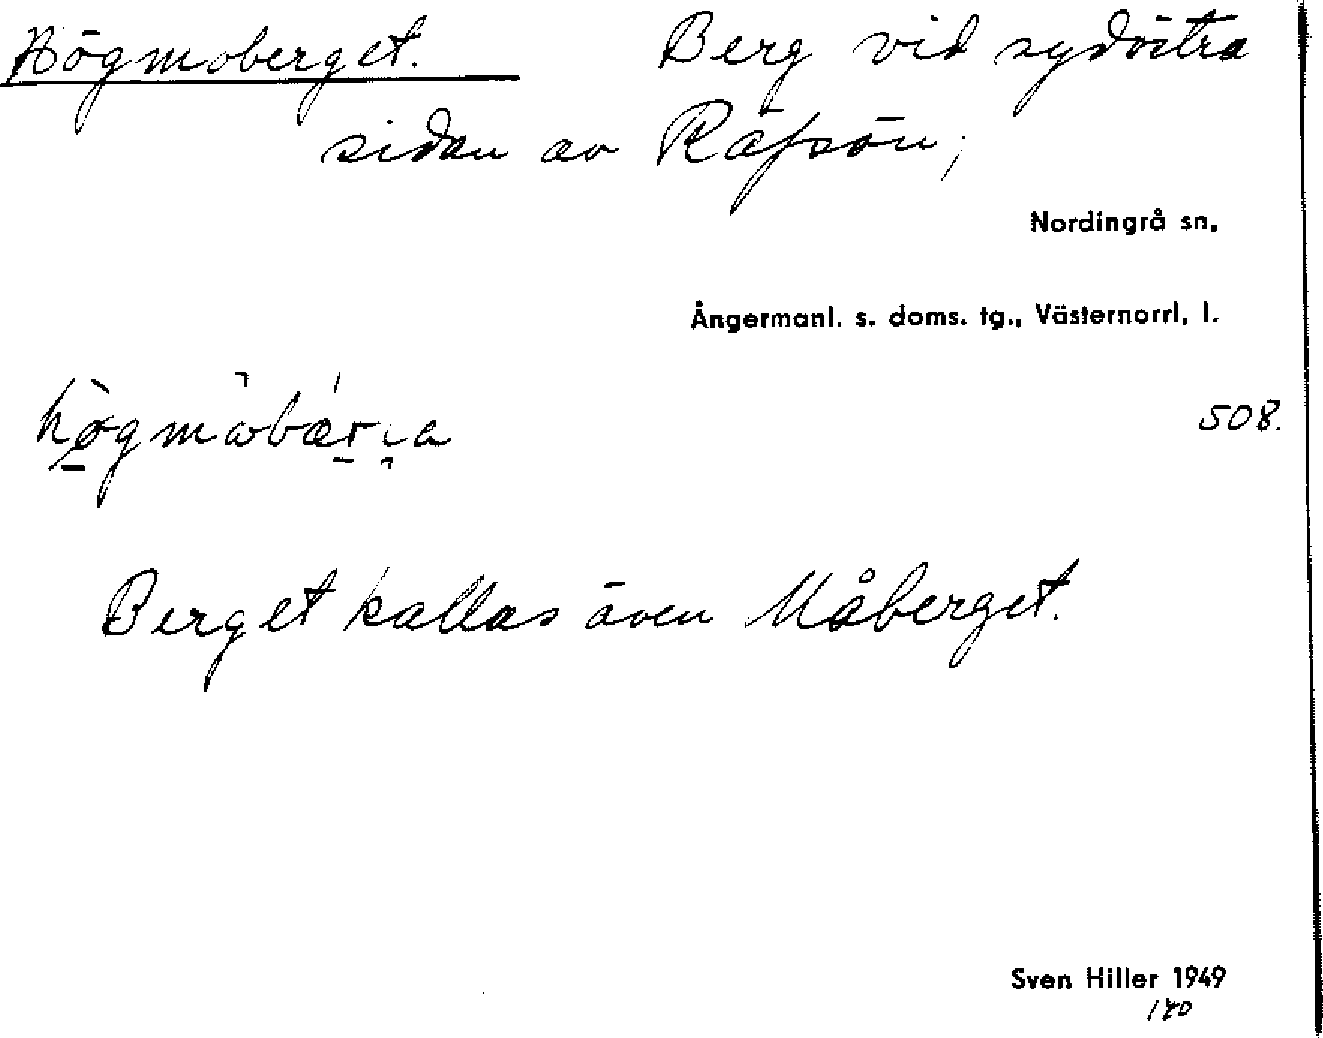 Högmoberget. Berg vid sydöstra
sidan av Räfsön;
Nordingrå sn,
Ångermanl. s. doms. tg., Västernorrl. l.
508.
Berget kallas även Måberget.
Sven Hiller 1949